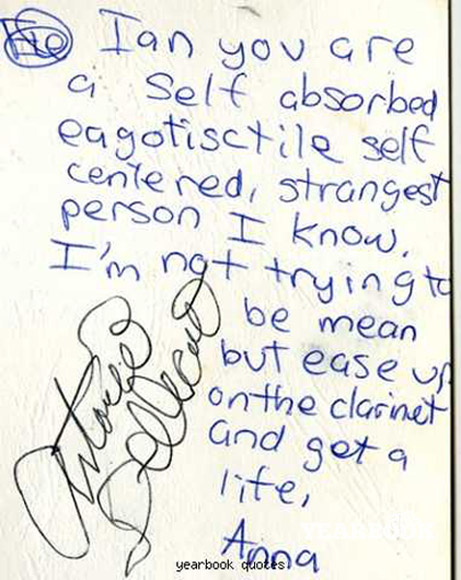 Ian you are
a self absorbed
eagotisctile self
centered, strangest
person I know.
I'm not trying to
be mean
but ease up
on the clarinet
and get a
life,
Anna
YEARBOOK
yearbook quotes